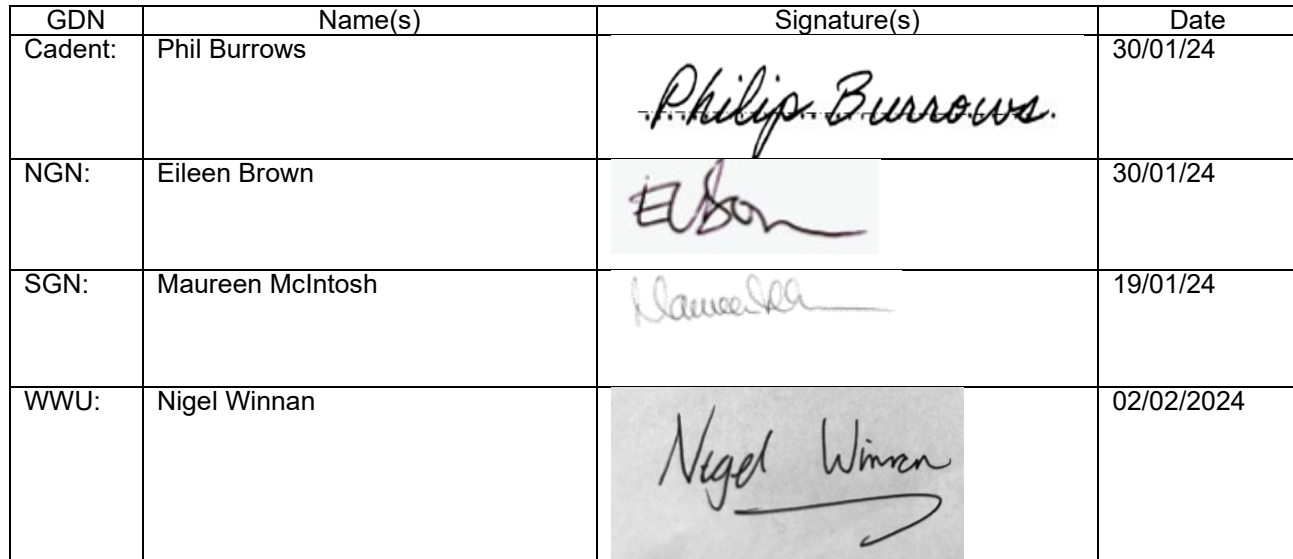 GDN Name(s) Signature(s) Date
Cadent: Phil Burrows Philip Burrows. 30/01/24
NGN: Eileen Brown 30/01/24
SGN: Maureen McIntosh 19/01/24
WWU: Nigel Winnan Nigel Winnan 02/02/2024